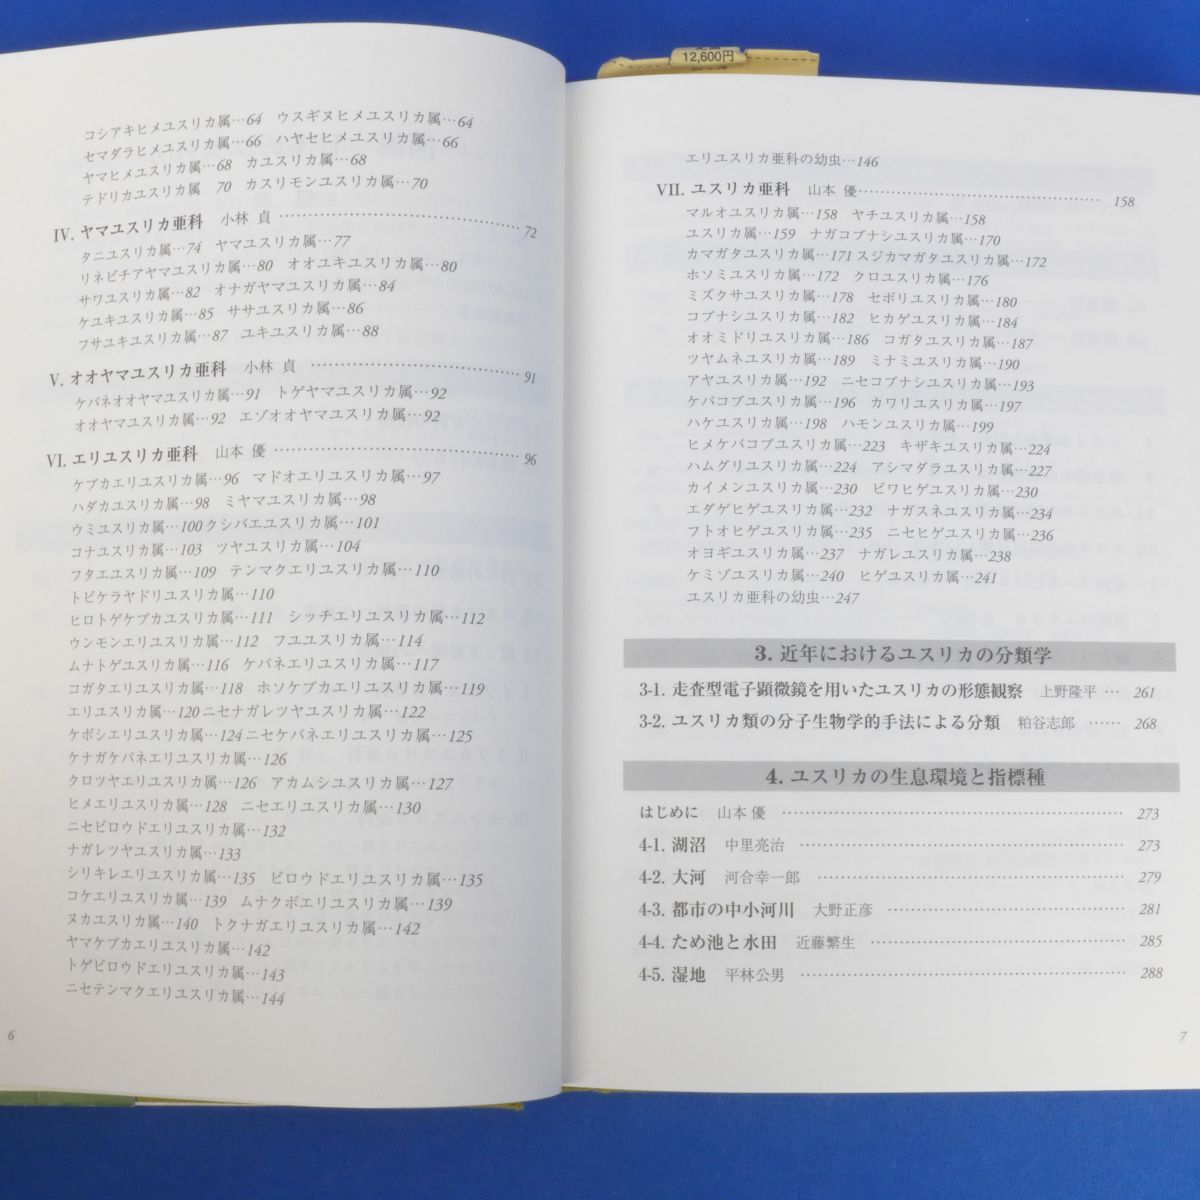 コシアキヒメユスリカ属…64　ウスギヌヒメユスリカ属…64
セマダラヒメユスリカ属…66　ハヤセヒメユスリカ属…66
ヤマヒメユスリカ属…68　カユスリカ属…68
テドリカユスリカ属　70　カスリモンユスリカ属…70
IV. ヤマユスリカ亜科　小林　貞 ……………………………… 72
タニユスリカ属…74　ヤマユスリカ属…77
リネビチアヤマユスリカ属…80　オオユキユスリカ属…80
サワユスリカ属…82　オナガヤマユスリカ属…84
ケユキユスリカ属…85　ササユスリカ属…86
フサユキユスリカ属…87　ユキユスリカ属…88
V. オオヤマユスリカ亜科　小林　貞 …………………………… 91
ケバネオオヤマユスリカ属…91　トゲヤマユスリカ属…92
オオヤマユスリカ属…92　エゾオオヤマユスリカ属…92
VI. エリユスリカ亜科　山本　優 ……………………………… 96
ケブカエリユスリカ属…96　マドオエリユスリカ属…97
ハダカユスリカ属…98　ミヤマユスリカ属…98
ウミユスリカ属…100 クシバエユスリカ属…101
コナユスリカ属…103　ツヤユスリカ属…104
フタエユスリカ属…109　テンマクエリユスリカ属…110
トビケラヤドリユスリカ属…110
ヒロトゲケブカユスリカ属…111　シッチエリユスリカ属…112
ウンモンエリユスリカ属…112　フユユスリカ属…114
ムナトゲユスリカ属…116　ケバネエリユスリカ属…117
コガタエリユスリカ属…118　ホソケブカユスリカ属…119
エリユスリカ属…120 ニセナガレツヤユスリカ属…122
ケボシエリユスリカ属…124 ニセケバネエリユスリカ属…125
ケナガケバネエリユスリカ属…126
クロツヤエリユスリカ属…126　アカムシユスリカ属…127
ヒメエリユスリカ属…128　ニセエリユスリカ属…130
ニセビロウドエリユスリカ属…132
ナガレツヤユスリカ属…133
シリキレエリユスリカ属…135　ビロウドエリユスリカ属…135
コケエリユスリカ属…139　ムナクボエリユスリカ属…139
ヌカユスリカ属…140　トクナガエリユスリカ属…142
ヤマケブカエリユスリカ属…142
トゲビロウドエリユスリカ属…143
ニセテンマクエリユスリカ属…144
6
12,600円
エリユスリカ亜科の幼虫…146
VII. ユスリカ亜科　山本　優 ……………………………… 158
マルオユスリカ属…158　ヤチユスリカ属…158
ユスリカ属…159　ナガコブナシユスリカ属…170
カマガタユスリカ属…171 スジカマガタユスリカ属…172
ホソミユスリカ属…172　クロユスリカ属…176
ミズクサユスリカ属…178　セボリユスリカ属…180
コブナシユスリカ属…182　ヒカゲユスリカ属…184
オオミドリユスリカ属…186　コガタユスリカ属…187
ツヤムネユスリカ属…189　ミナミユスリカ属…190
アヤユスリカ属…192　ニセコブナシユスリカ属…193
ケバコブユスリカ属…196　カワリユスリカ属…197
ハケユスリカ属…198　ハモンユスリカ属…199
ヒメケバコブユスリカ属…223　キザキユスリカ属…224
ハムグリユスリカ属…224　アシマダラユスリカ属…227
カイメンユスリカ属…230　ビワヒゲユスリカ属…230
エダゲヒゲユスリカ属…232　ナガスネユスリカ属…234
フトオヒゲユスリカ属…235　ニセヒゲユスリカ属…236
オヨギユスリカ属…237　ナガレユスリカ属…238
ケミゾユスリカ属…240　ヒゲユスリカ属…241
ユスリカ亜科の幼虫…247
3. 近年におけるユスリカの分類学
3-1. 走査型電子顕微鏡を用いたユスリカの形態観察　上野隆平 … 261
3-2. ユスリカ類の分子生物学的手法による分類　粕谷志郎 …… 268
4. ユスリカの生息環境と指標種
はじめに　山本 優 ……………………………………… 273
4-1. 湖沼　中里亮治 ……………………………………… 273
4-2. 大河　河合幸一郎 …………………………………… 279
4-3. 都市の中小河川　大野正彦 ………………………… 281
4-4. ため池と水田　近藤繁生 …………………………… 285
4-5. 湿地　平林公男 ……………………………………… 288
7